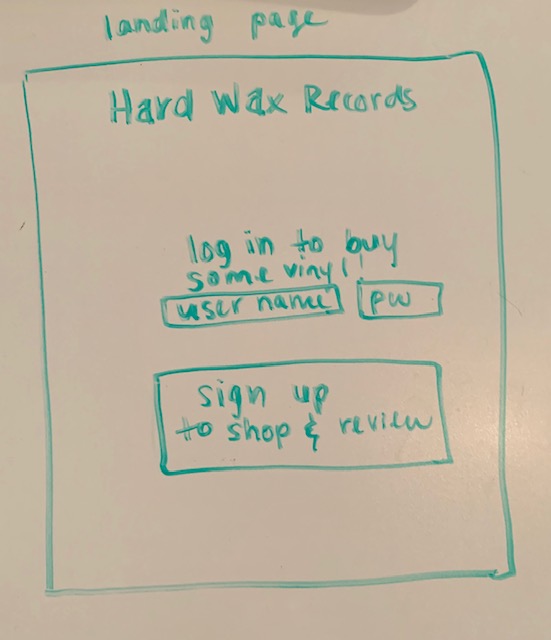 landing page
Hard Wax Records
log in to buy
some vinyl!
user name pw
sign up
to shop & review